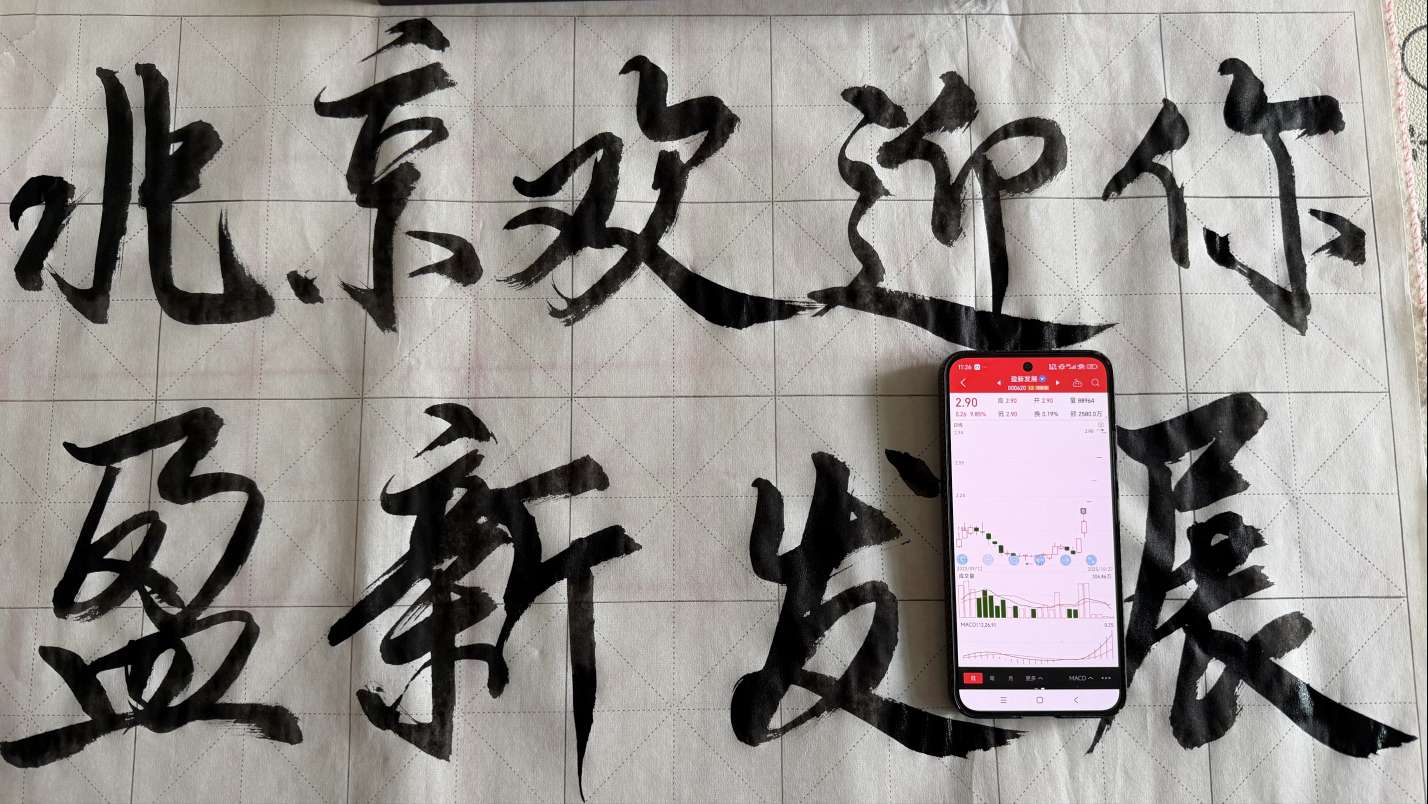 北京欢迎你
盈新发展
11:26
盈新发展
000620
2.90
高 2.90 开 2.90 量 88964
0.26 9.85% 低 2.90 换 0.19% 额 2580.0万
日线
成交量
MACD(12,26,9) 0.25
日 年 月 更多 MACD